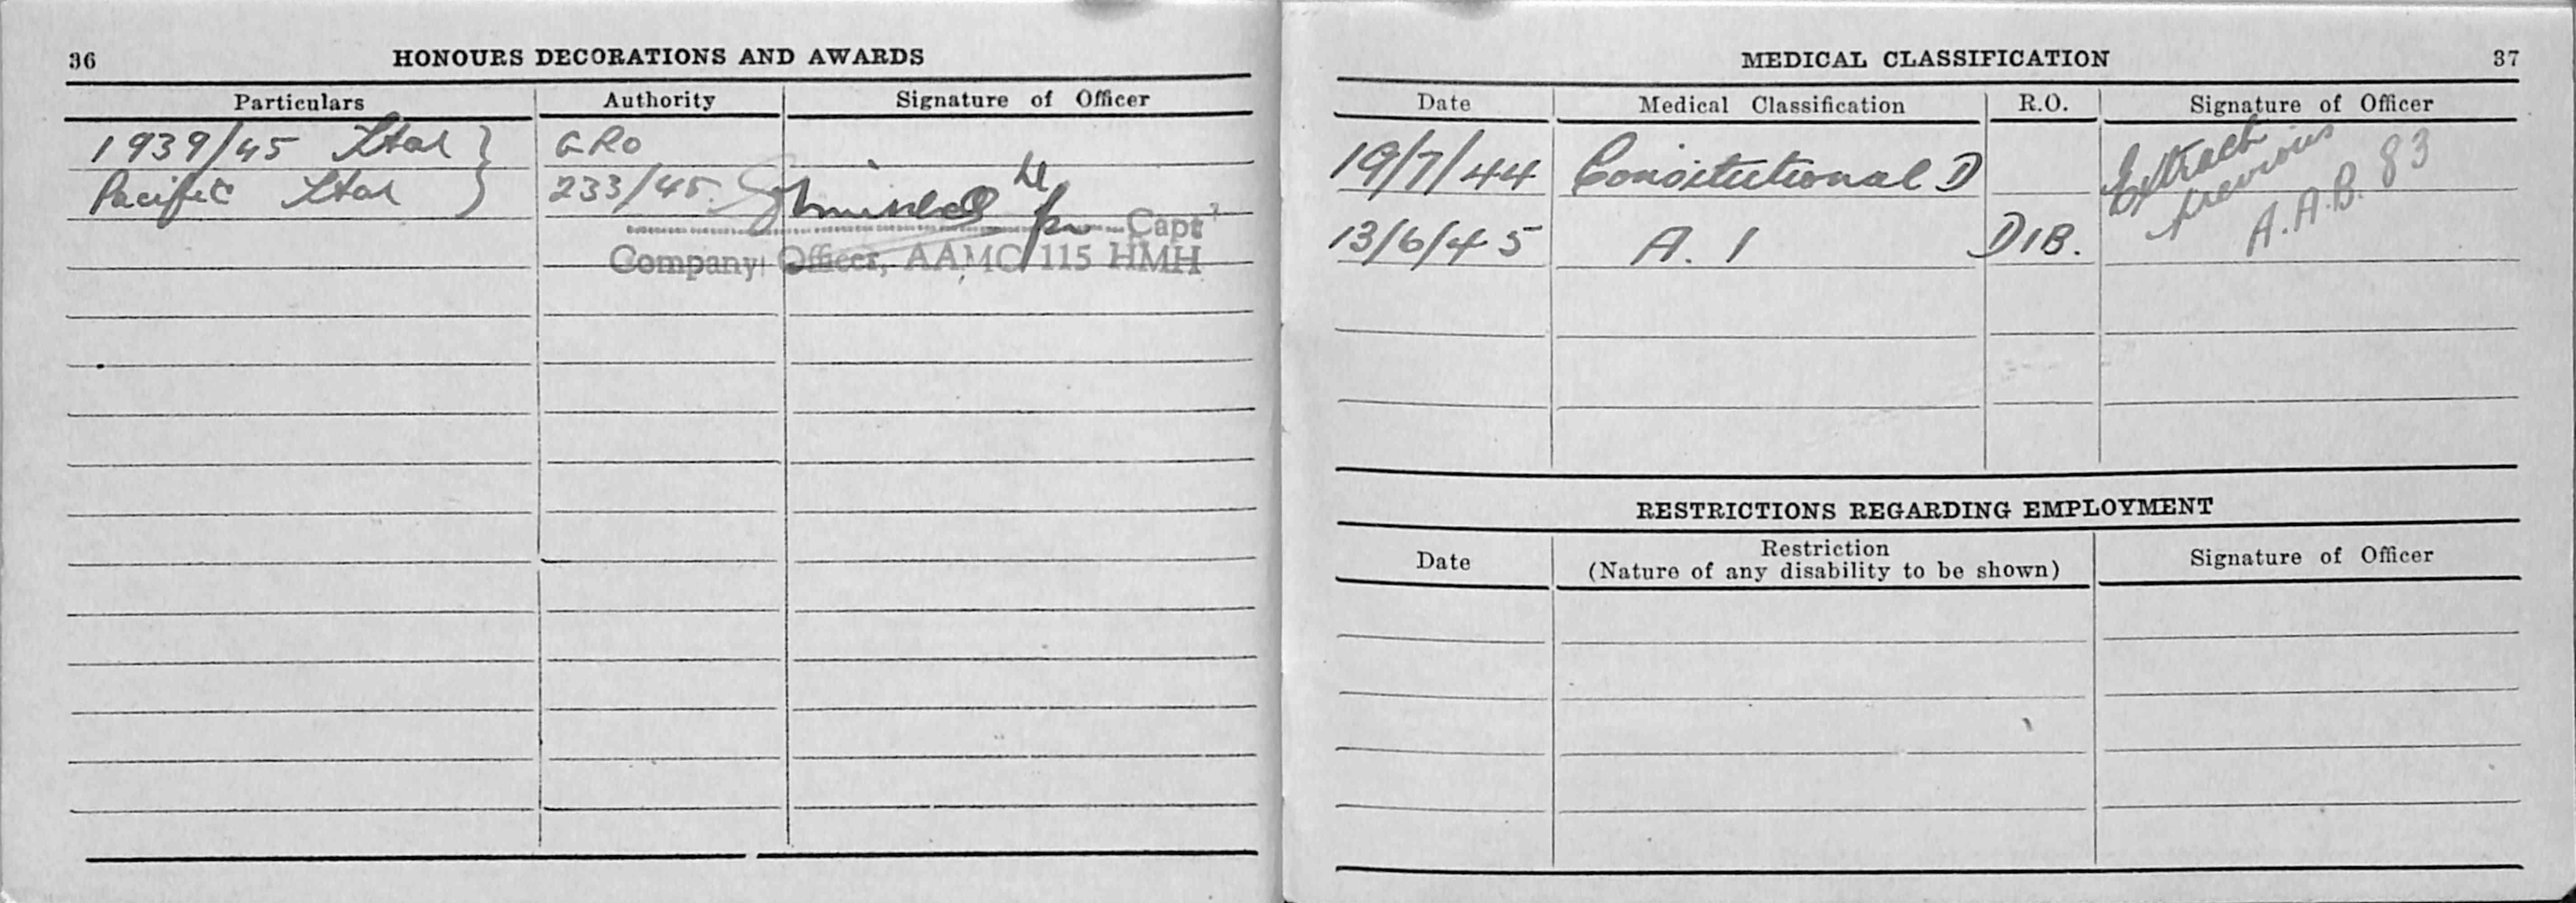 36
HONOURS DECORATIONS AND AWARDS
Particulars Authority Signature of Officer
1939/45 Star } GRO
Pacific Star } 233/45.
Lt
for Capt
Company Officer, AAMC 115 HMH
MEDICAL CLASSIFICATION
37
Date Medical Classification R.O. Signature of Officer
19/7/44 Consitutional D
13/6/45 A. 1 D1B.
Extract
previous
A.A.B. 83
RESTRICTIONS REGARDING EMPLOYMENT
Date Restriction Signature of Officer
(Nature of any disability to be shown)